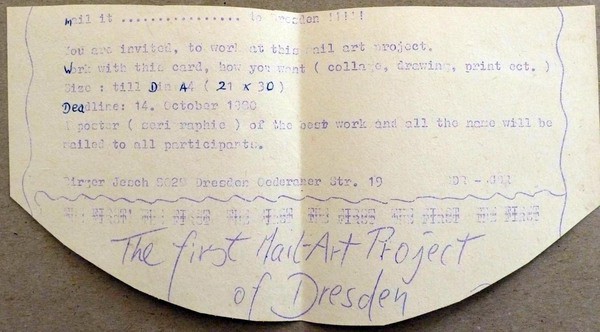 Mail it ................ to Dresden !!!!!
You are invited, to work at this mail art project.
Work with this card, how you want ( collage, drawing, print ect. )
Size : till Din A4 ( 21 x 30 )
Deadline: 14. October 1980
A poster ( serigraphic ) of the best work and all the name will be
mailed to all participants.
Birger Jesch 8029 Dresden Oederaner Str. 19 DDR -
THE FIRST THE FIRST THE FIRST THE FIRST THE FIRST THE FIRST
The first Mail-Art Project
of Dresden